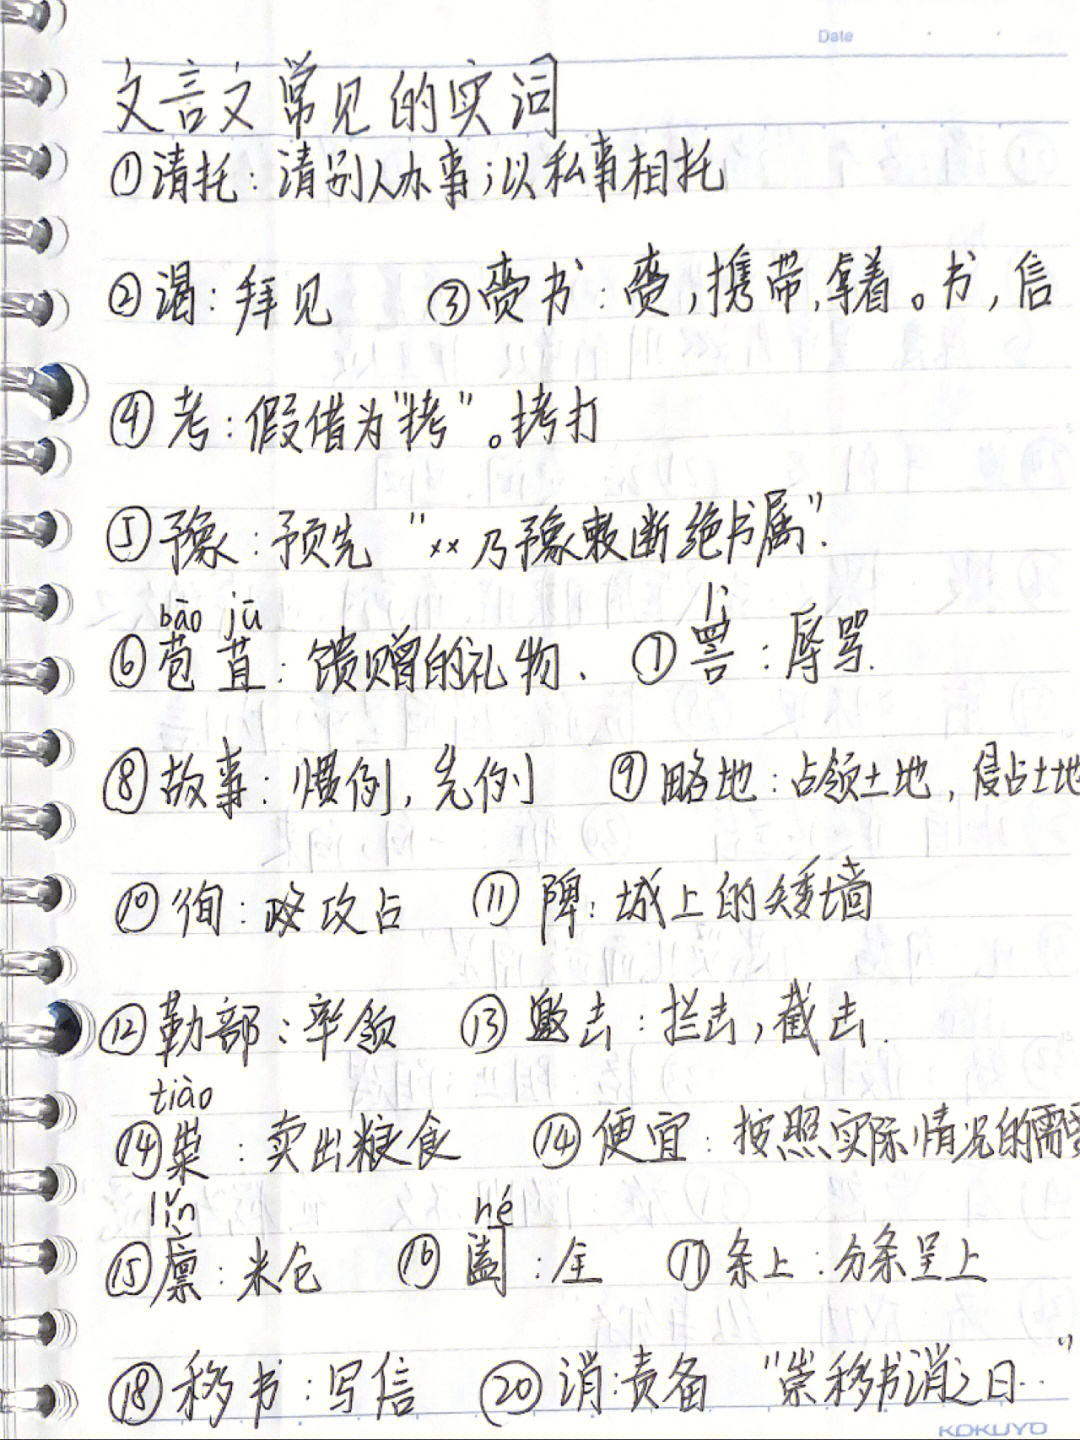 Date
文言文常见的实词
①请托：请别人办事；以私事相托
②谒：拜见 ③赍书：赍，携带，拿着。书，信
④考：假借为"拷"。拷打
⑤豫：预先 "××乃豫敕断绝书属".
bāo jū lì
⑥苞苴：馈赠的礼物. ⑦詈：辱骂.
⑧故事：惯例，先例 ⑨略地：占领土地，侵占土地
⑩徇：略 攻占 ⑪陴：城上的矮墙
⑫勒部：率领 ⑬邀击：拦击，截击.
tiào
⑭粜：卖出粮食 ⑭便宜：按照实际情况的需要
lǐn hé
⑮廪：米仓 ⑯阖：全 ⑰条上：分条呈上
⑱移书：写信 ⑳消：责备 "崇移书消之曰…"
KOKUYO